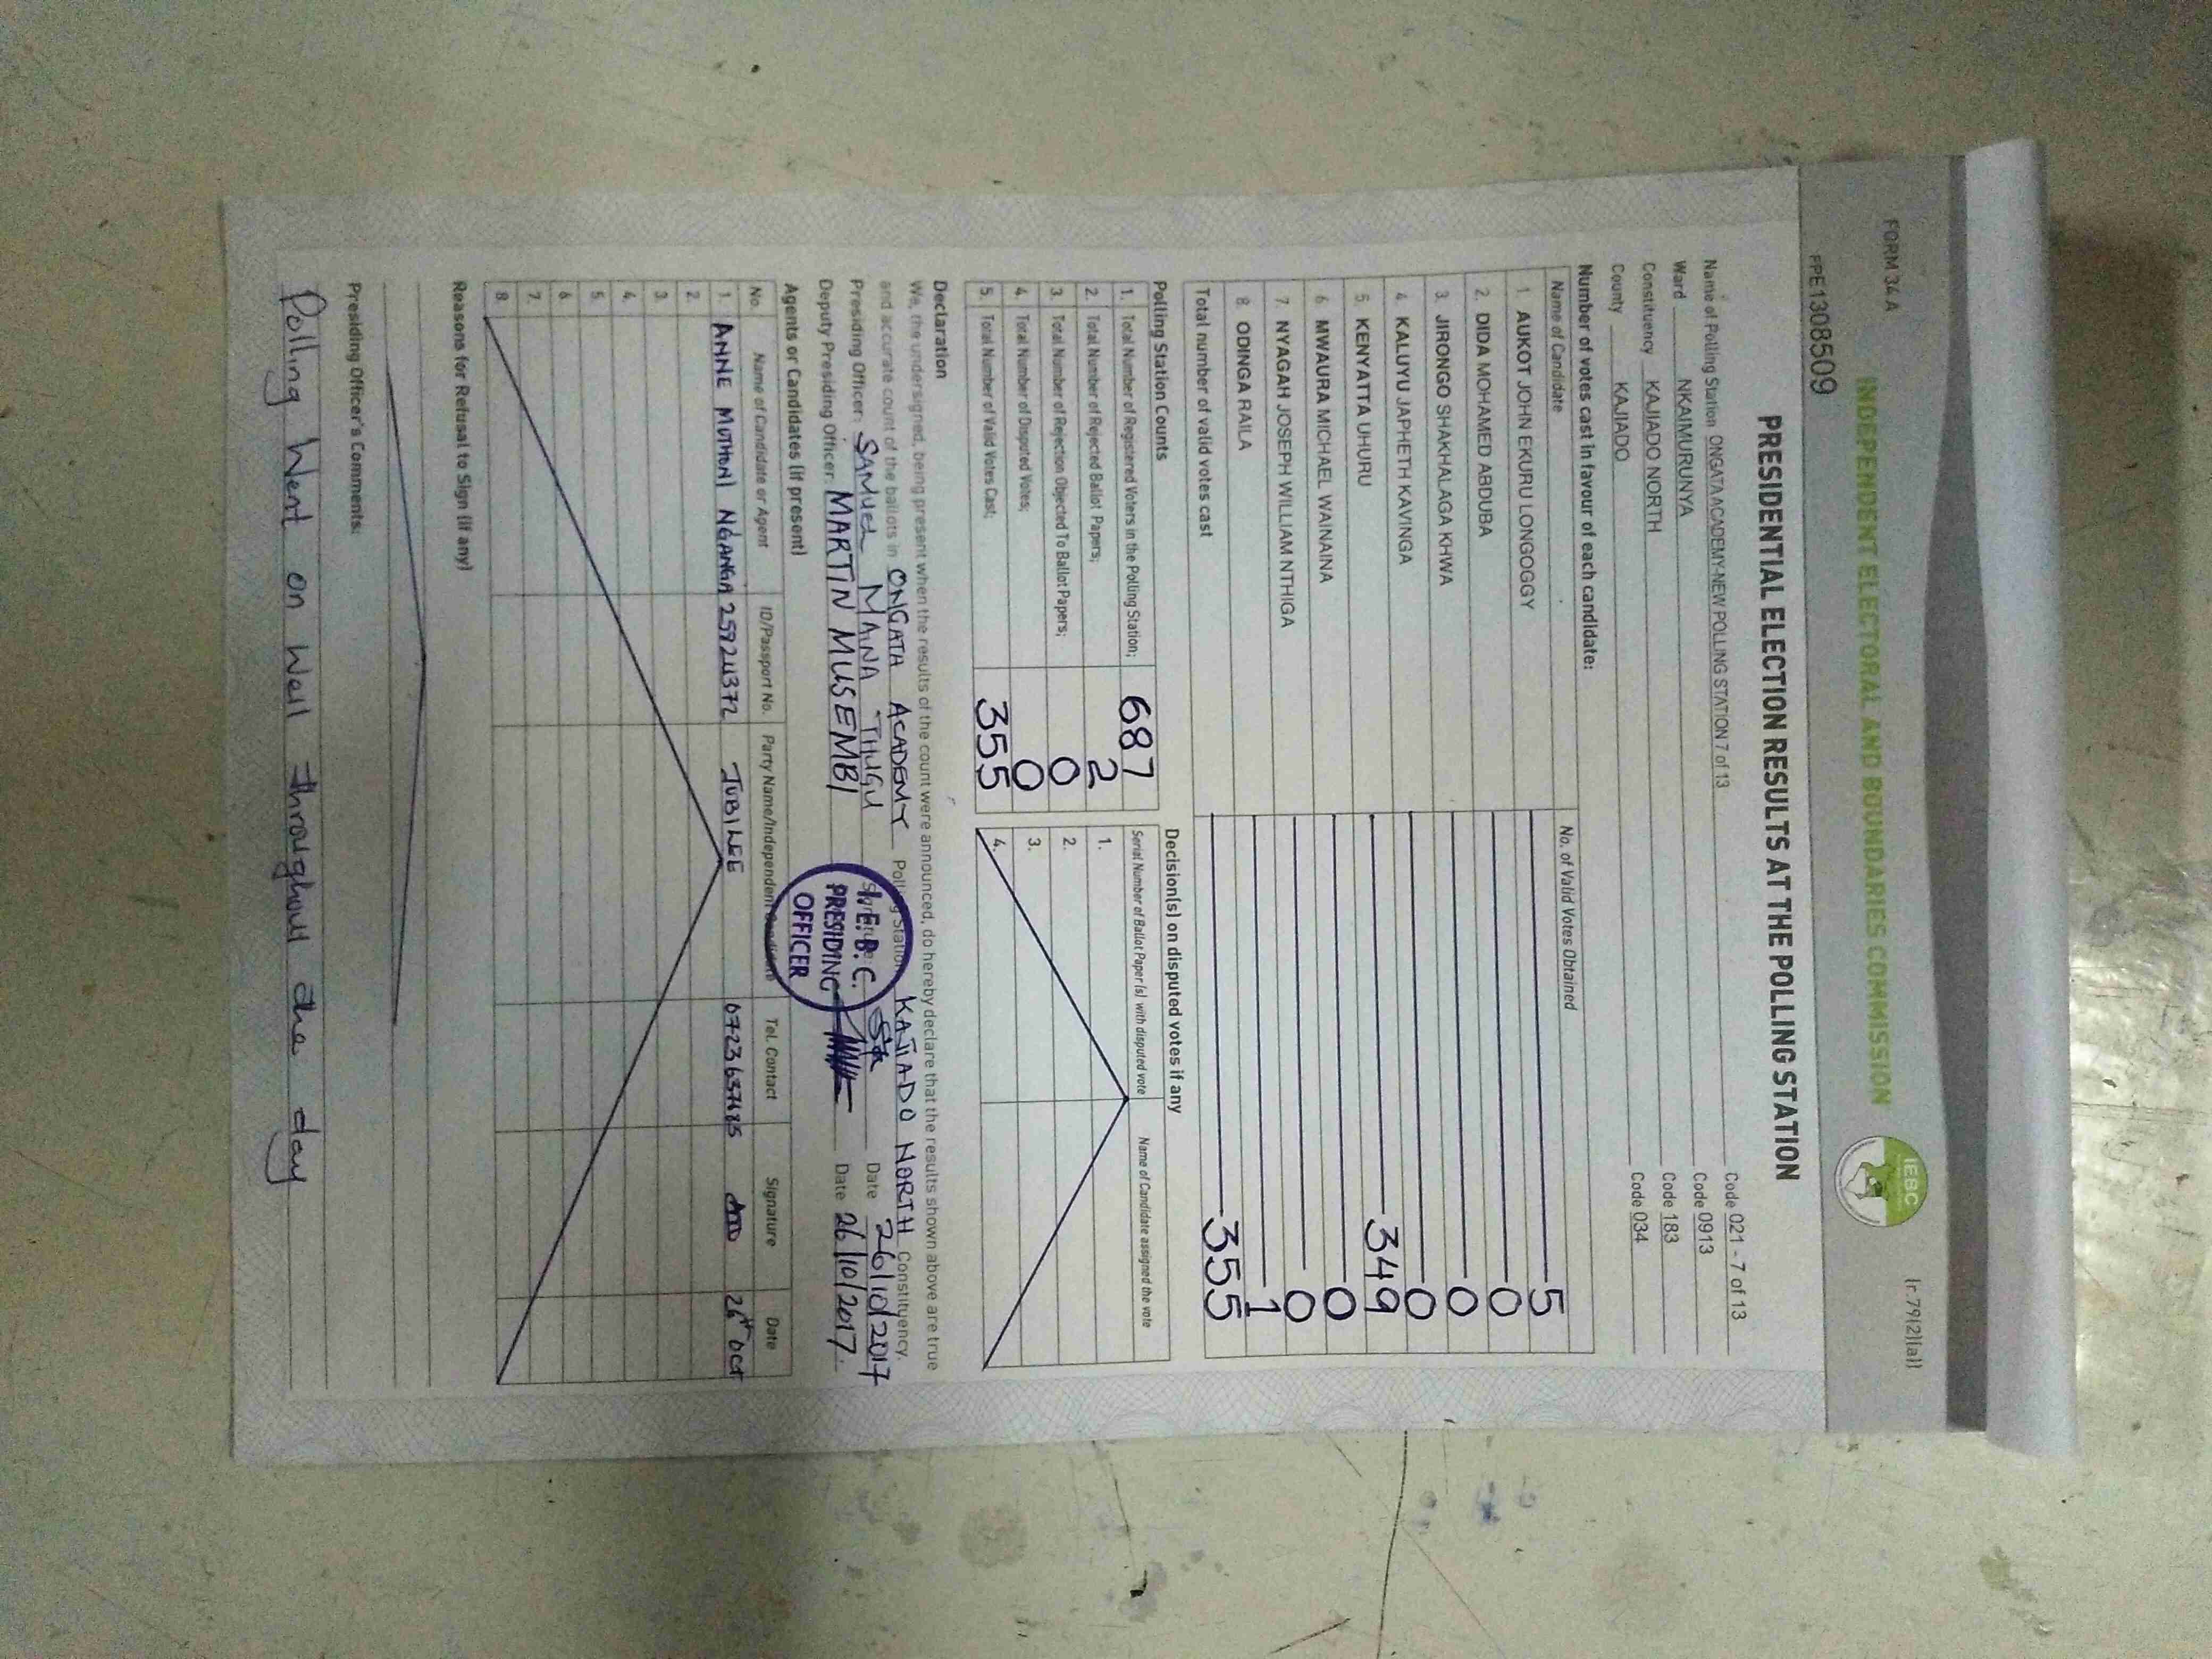 FORM 34 A
(r.79(2)(a))
INDEPENDENT ELECTORAL AND BOUNDARIES COMMISSION
IEBC
PPE1308509
PRESIDENTIAL ELECTION RESULTS AT THE POLLING STATION
Name of Polling Station ONGATA ACADEMY-NEW POLLING STATION 7 of 13 Code 021 - 7 of 13
Ward NKAIMURUNYA Code 0913
Constituency KAJIADO NORTH Code 183
County KAJIADO Code 034
Number of votes cast in favour of each candidate:
Name of Candidate No. of Valid Votes Obtained
1. AUKOT JOHN EKURU LONGOGGY 5
2. DIDA MOHAMED ABDUBA 0
3. JIRONGO SHAKHALAGA KHWA 0
4. KALUYU JAPHETH KAVINGA 0
5. KENYATTA UHURU 349
6. MWAURA MICHAEL WAINAINA 0
7. NYAGAH JOSEPH WILLIAM NTHIGA 0
8. ODINGA RAILA 1
Total number of valid votes cast 355
Polling Station Counts
1. Total Number of Registered Voters in the Polling Station; 687
2. Total Number of Rejected Ballot Papers; 2
3. Total Number of Rejection Objected To Ballot Papers; 0
4. Total Number of Disputed Votes; 0
5. Total Number of Valid Votes Cast; 355
Decision(s) on disputed votes if any
Serial Number of Ballot Paper (s) with disputed vote Name of Candidate assigned the vote
1.
2.
3.
4.
Declaration
We, the undersigned, being present when the results of the count were announced, do hereby declare that the results shown above are true
and accurate count of the ballots in ONGATA ACADEMY Polling Station KAJIADO NORTH Constituency.
Presiding Officer: SAMUEL MAINA THUGU Signature: Date 26/10/2017
Deputy Presiding Officer: MARTIN MUSEMBI Date 26/10/2017
I.E.B.C.
PRESIDING
OFFICER
Agents or Candidates (if present)
No. Name of Candidate or Agent ID/Passport No. Party Name/Independent Candidate Tel. Contact Signature Date
1. ANNE MUTHONI NGANGA 25924372 JUBILEE 0723637485 26th Oct
2.
3.
4.
5.
6.
7.
8.
Reasons for Refusal to Sign (if any)
Presiding Officer's Comments:
Polling Went on Well throughout the day